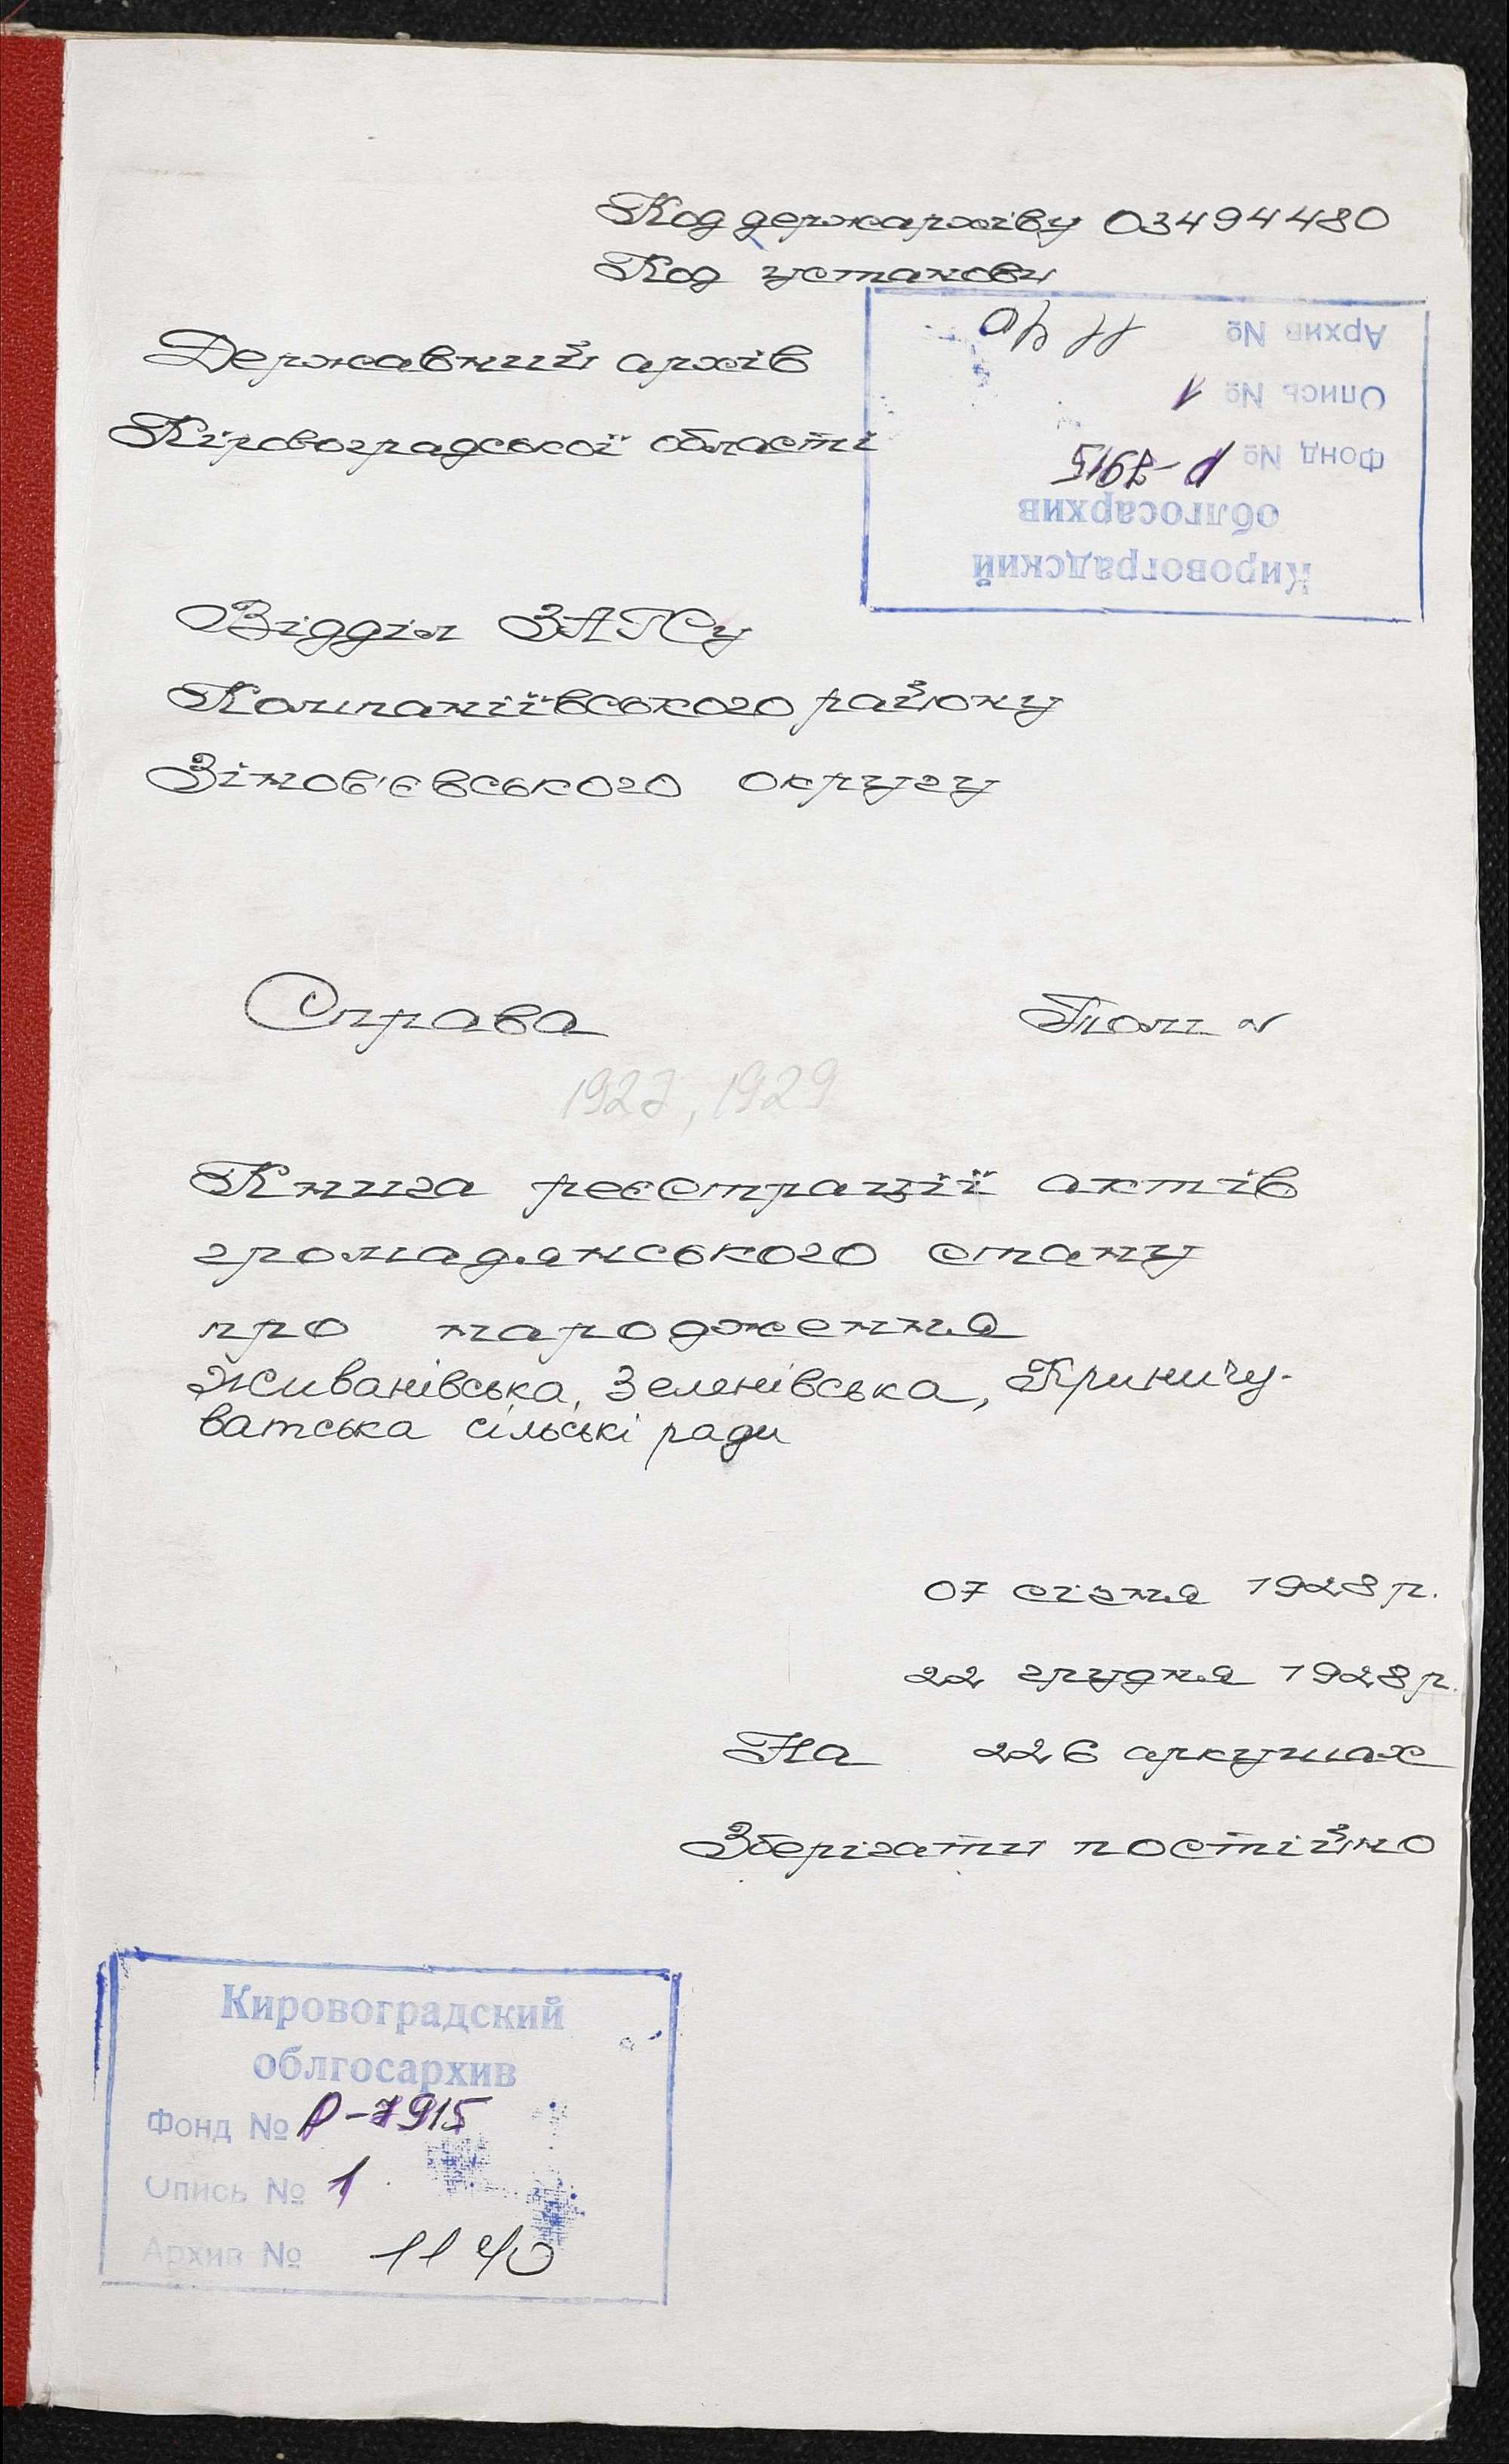 Код держархіву 03494480
Код установи
Державний архів
Кіровоградської області
Архив № 1140
Опись № 1
Фонд № Р-7915
облгосархив
Кировоградский
Відділ ЗАГСу
Компаніївського району
Зінов'євського округу
Справа Том №
1927, 1929
Книга реєстрації актів
громадянського стану
про народження
Живанівська, Зеленівська, Криничу-
ватська сільські ради
07 січня 1928 р.
22 грудня 1928 р.
На 226 аркушах
Зберігати постійно
Кировоградский
облгосархив
Фонд № Р-7915
Опись № 1
Архив № 1140